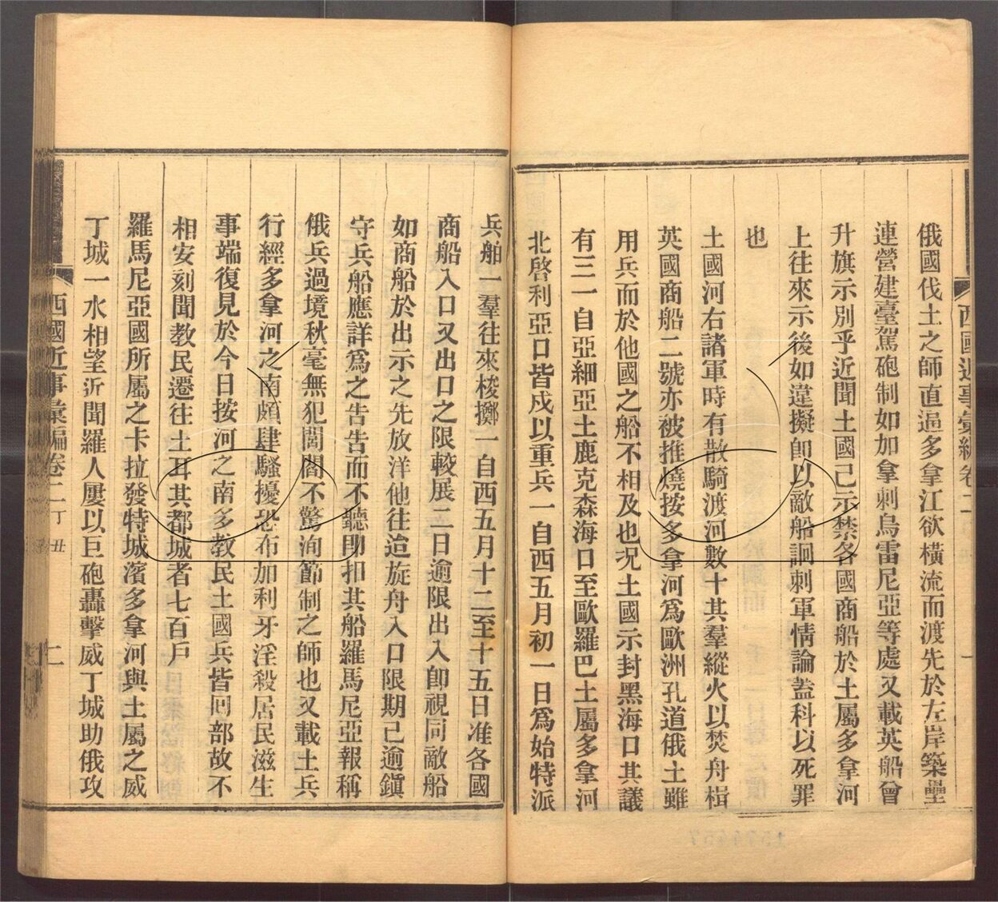 俄國伐土之師直逼多拿江欲橫流而渡先於左岸築壘
連營建臺駕砲制如加拿剌烏雷尼亞等處又載英船曾
升旗示別乎近聞土國已示禁各國商船於土屬多拿河
上往來示後如違擬卽以敵船詗刺軍情論葢科以死罪
也
土國河右諸軍時有散騎渡河數十其羣縱火以焚舟楫
英國商船二號亦被推燒按多拿河爲歐洲孔道俄土雖
用兵而於他國之船不相及也況土國示封黑海口其議
有三一自亞細亞土鹿克森海口至歐羅巴土屬多拿河
北啓利亞口皆戍以重兵一自西五月初一日爲始特派
兵船一羣往來梭擲一自西五月十二至十五日准各國
商船入口又出口之限較展二日逾限出入卽視同敵船
如商船於出示之先放洋他往迨旋舟入口限期已逾鎭
守兵船應詳爲之告告而不聽卽扣其船羅馬尼亞報稱
俄兵過境秋毫無犯閭閻不驚洵節制之師也又載土兵
行經多拿河之南頗肆騷擾恐布加利牙淫殺居民滋生
事端復見於今日按河之南多教民土國兵皆回部故不
相安刻聞教民遷往土耳其都城者七百戶
羅馬尼亞國所屬之卡拉發特城濱多拿河與土屬之威
丁城一水相望近聞羅人屢以巨砲轟擊威丁城助俄攻
西國近事彙編卷二
丁丑
二